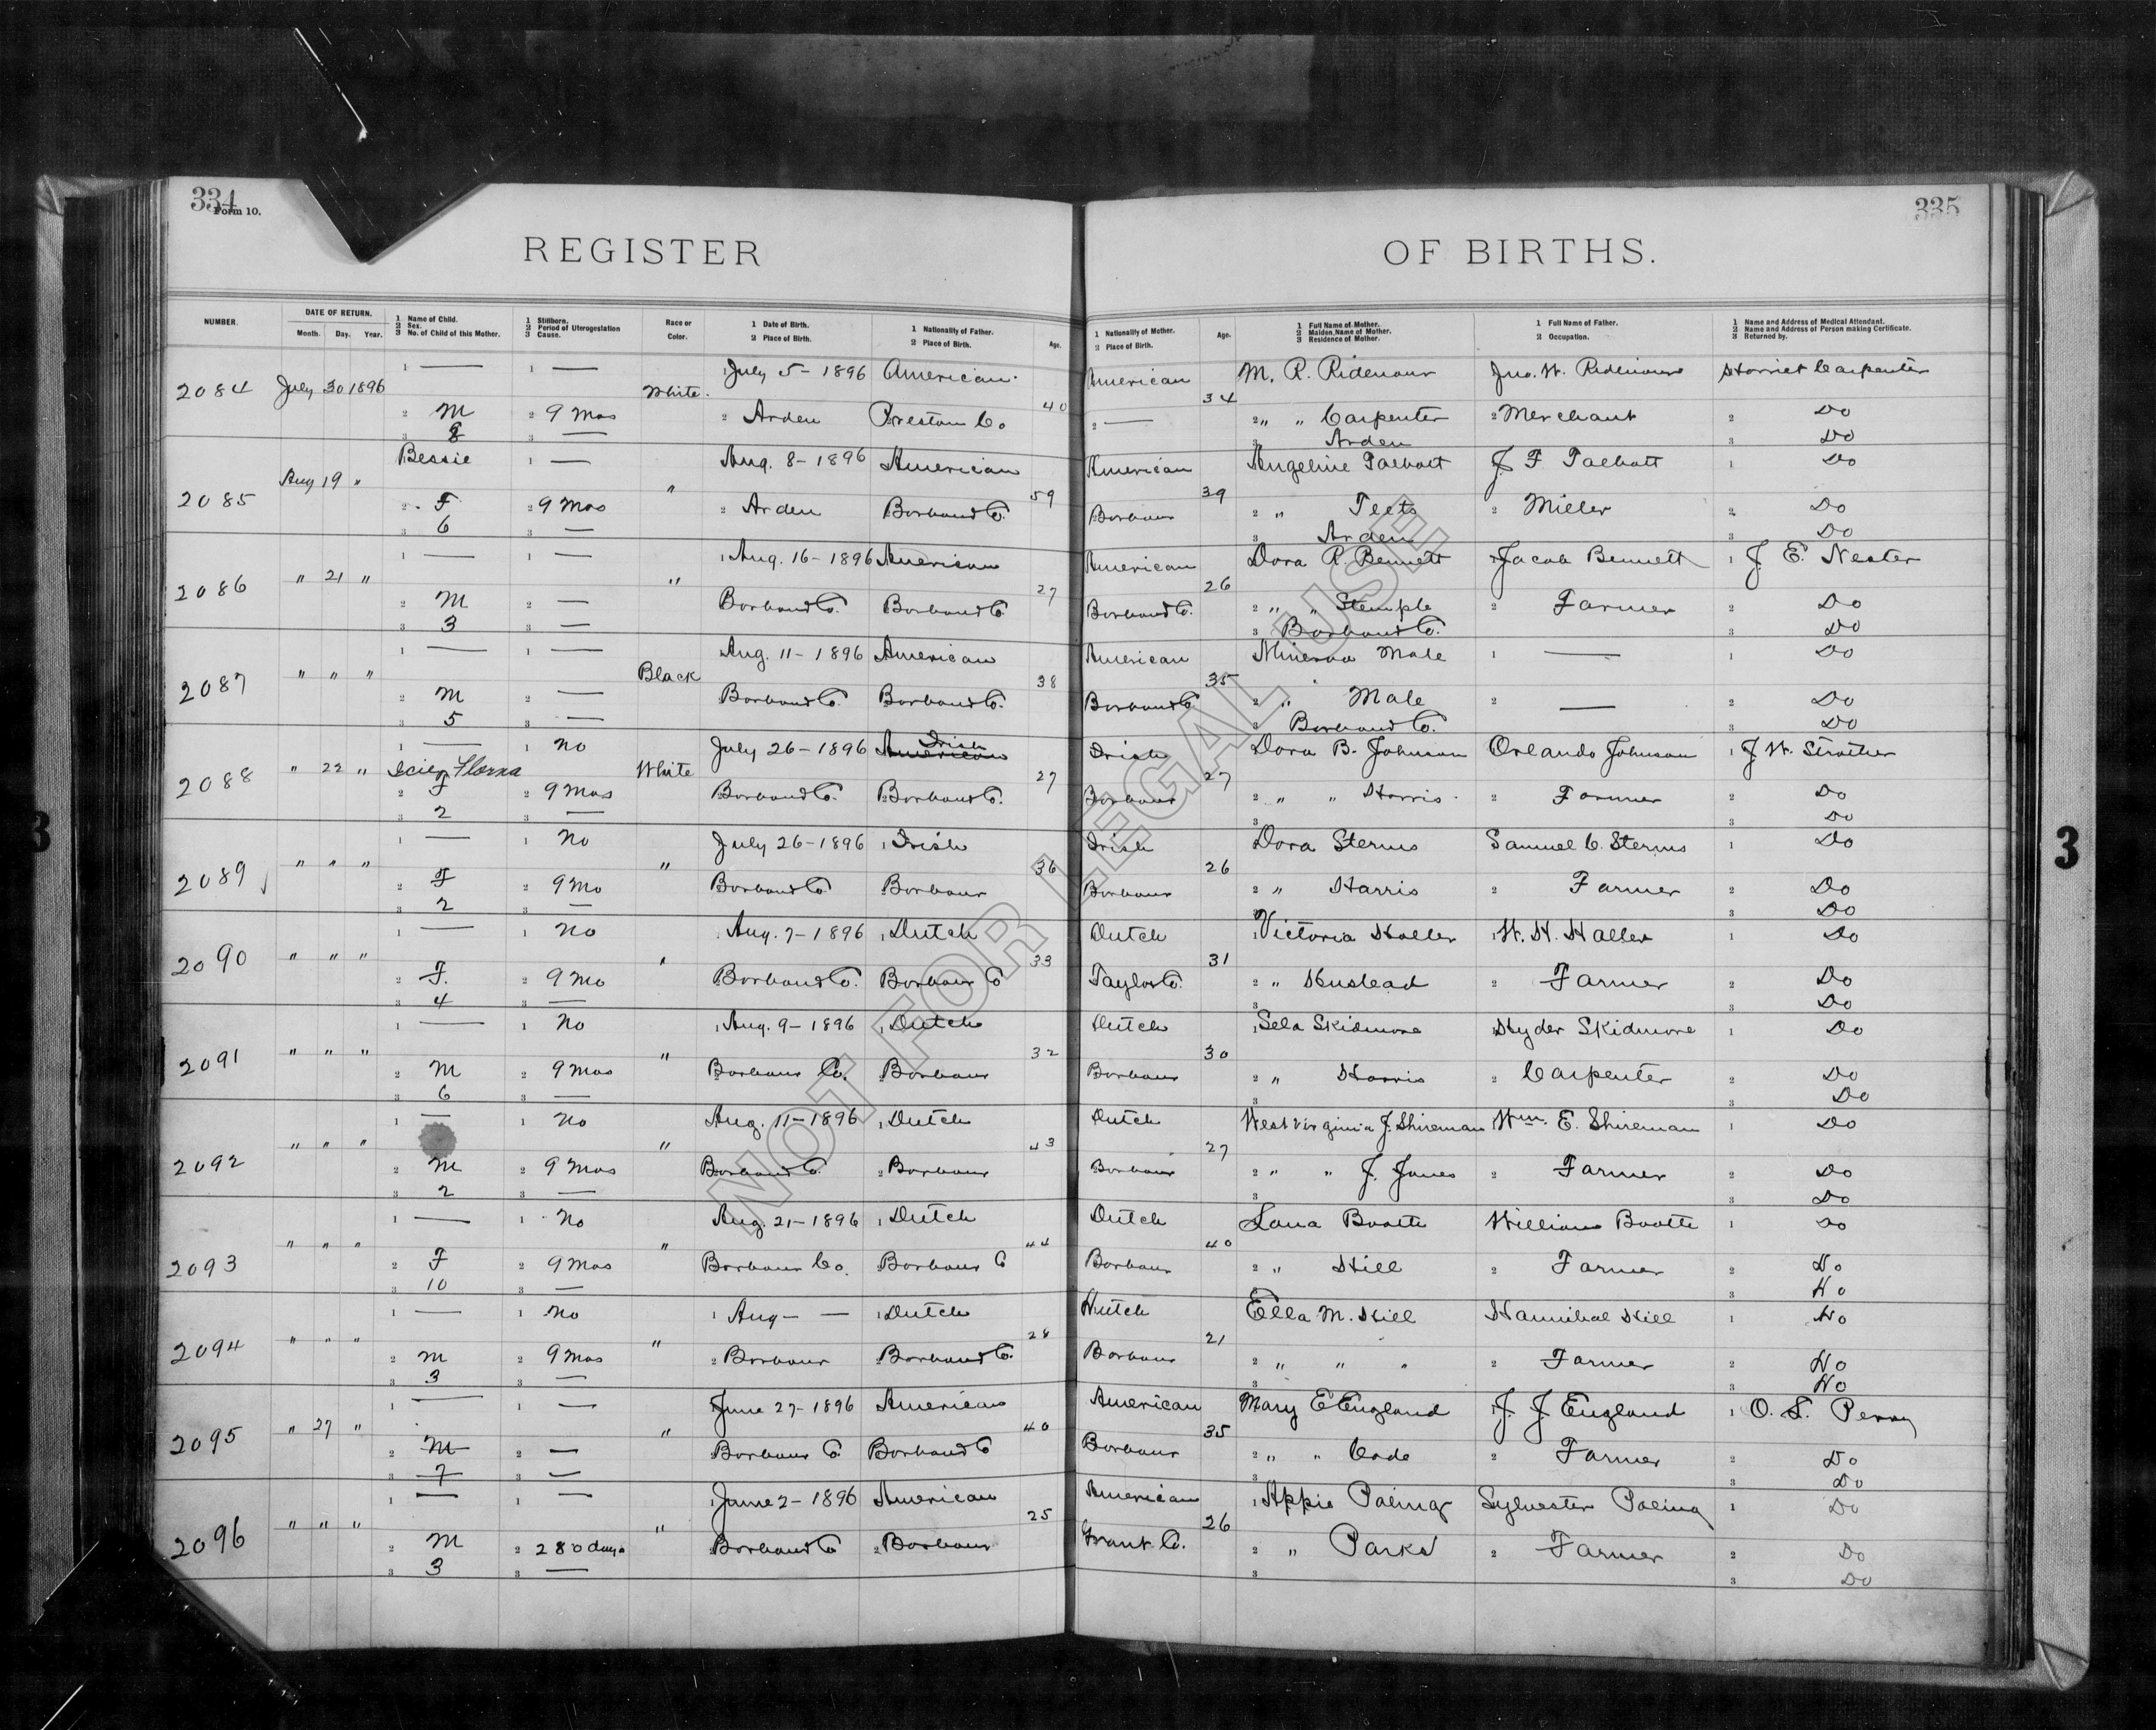 334
Form 10.
335
REGISTER OF BIRTHS.
NUMBER.
DATE OF RETURN.
Month. Day. Year.
1 Name of Child.
2 Sex.
3 No. of Child of this Mother.
1 Stillborn.
2 Period of Uterogestation
3 Cause.
Race or Color.
1 Date of Birth.
2 Place of Birth.
1 Nationality of Father.
2 Place of Birth.
Age.
1 Nationality of Mother.
2 Place of Birth.
Age.
1 Full Name of Mother.
2 Maiden Name of Mother.
3 Residence of Mother.
1 Full Name of Father.
2 Occupation.
1 Name and Address of Medical Attendant.
2 Name and Address of Person making Certificate.
3 Returned by.
2084 July 30 1896 1 — 1 — White. 1 July 5 - 1896 American. 40 American 34 M. R. Ridenour Jno. W. Ridenour Harriet Carpenter
2 M 2 9 Mos 2 Arden Preston Co 2 — 2 " " Carpenter 2 Merchant 2 Do
3 8 3 — 3 Arden 3 Do
2085 Aug 19 " Bessie 1 — " Aug. 8 - 1896 American 59 American 39 Angeline Talbott J F Talbott 1 Do
2 F 2 9 Mos 2 Arden Barbour Co. Barbour 2 " Teets 2 Miller 2 Do
3 6 3 — 3 Arden 3 Do
2086 " 21 " 1 — 1 — " 1 Aug. 16 - 1896 American 27 American 26 Dora R. Bennett Jacob Bennett 1 J. E. Nester
2 M 2 — Barbour Co. Barbour Co Barbour Co. 2 " " Stemple 2 Farmer 2 Do
3 3 3 — 3 Barbour Co. 3 Do
2087 " " " 1 — 1 — Black Aug. 11 - 1896 American 38 American 35 Minerva Male 1 — 1 Do
2 M 2 — Barbour Co. Barbour Co. Barbour Co 2 " Male 2 — 2 Do
3 5 3 — 3 Barbour Co. 3 Do
2088 " 22 " 1 — 1 no White July 26 - 1896 American Irish 27 Irish 27 Dora B. Johnson Orlando Johnson 1 J. W. Strother
Florna
2 F 2 9 Mos Barbour Co. Barbour Co. Barbour 2 " " Harris 2 Farmer 2 Do
3 2 3 — 3 Do
2089 " " " 1 — 1 No " July 26 - 1896 1 Irish 36 Irish 26 Dora Sterns Samuel C. Sterns 1 Do
2 F 2 9 Mo Barbour Co Barbour Barbour 2 " Harris 2 Farmer 2 Do
3 2 3 — 3 Do
2090 " " " 1 — 1 No " Aug. 7 - 1896 1 Dutch 33 Dutch 31 1 Victoria Haller W. H. Haller 1 Do
2 F. 2 9 Mo Barbour Co. Barbour Co Taylor Co. 2 " Hustead 2 Farmer 2 Do
3 4 3 — 3 3 Do
2091 " " " 1 — 1 No " 1 Aug. 9 - 1896 1 Dutch 32 Dutch 30 1 Sela Skidmore Hyder Skidmore 1 Do
2 M 2 9 Mos Barbour Co. 2 Barbour Barbour 2 " Harris 2 Carpenter 2 Do
3 6 3 — 3 3 Do
2092 " " " 1 — 1 No " Aug. 11 - 1896 1 Dutch 43 Dutch 27 West Virginia J. Shireman Wm. E. Shireman 1 Do
2 M 2 9 Mos Barbour Co. 2 Barbour Barbour 2 " " J. Jones 2 Farmer 2 Do
3 2 3 — 3 3 Do
2093 " " " 1 — 1 No " Aug. 21 - 1896 1 Dutch 44 Dutch 40 Lana Boatte William Boatte 1 Do
2 F 2 9 Mos Barbour Co. Barbour Co Barbour 2 " Hill 2 Farmer 2 Do
3 10 3 — 3 3 Do
2094 " " " 1 — 1 No " 1 Aug — — 1 Dutch 28 Dutch 21 Ella M. Hill Hannibal Hill 1 Do
2 M 2 9 Mos 2 Barbour Barbour Co. Barbour 2 " " " 2 Farmer 2 Do
3 3 3 — 3 3 Do
2095 " 27 " 1 — 1 — " June 27 - 1896 American 40 American 35 Mary E England J. J England 1 O. S. Perry
2 M 2 — Barbour Co Barbour Co Barbour 2 " " Cade 2 Farmer 2 Do
3 7 3 — 3 3 Do
2096 " " " 1 — 1 — " 1 June 2 - 1896 American 25 American 26 1 Appie Poling Sylvester Poling 1 Do
2 M 2 280 days Barbour Co 2 Barbour Grant Co. 2 " Parks 2 Farmer 2 Do
3 3 3 — 3 3 Do
NOT FOR LEGAL USE
3
3